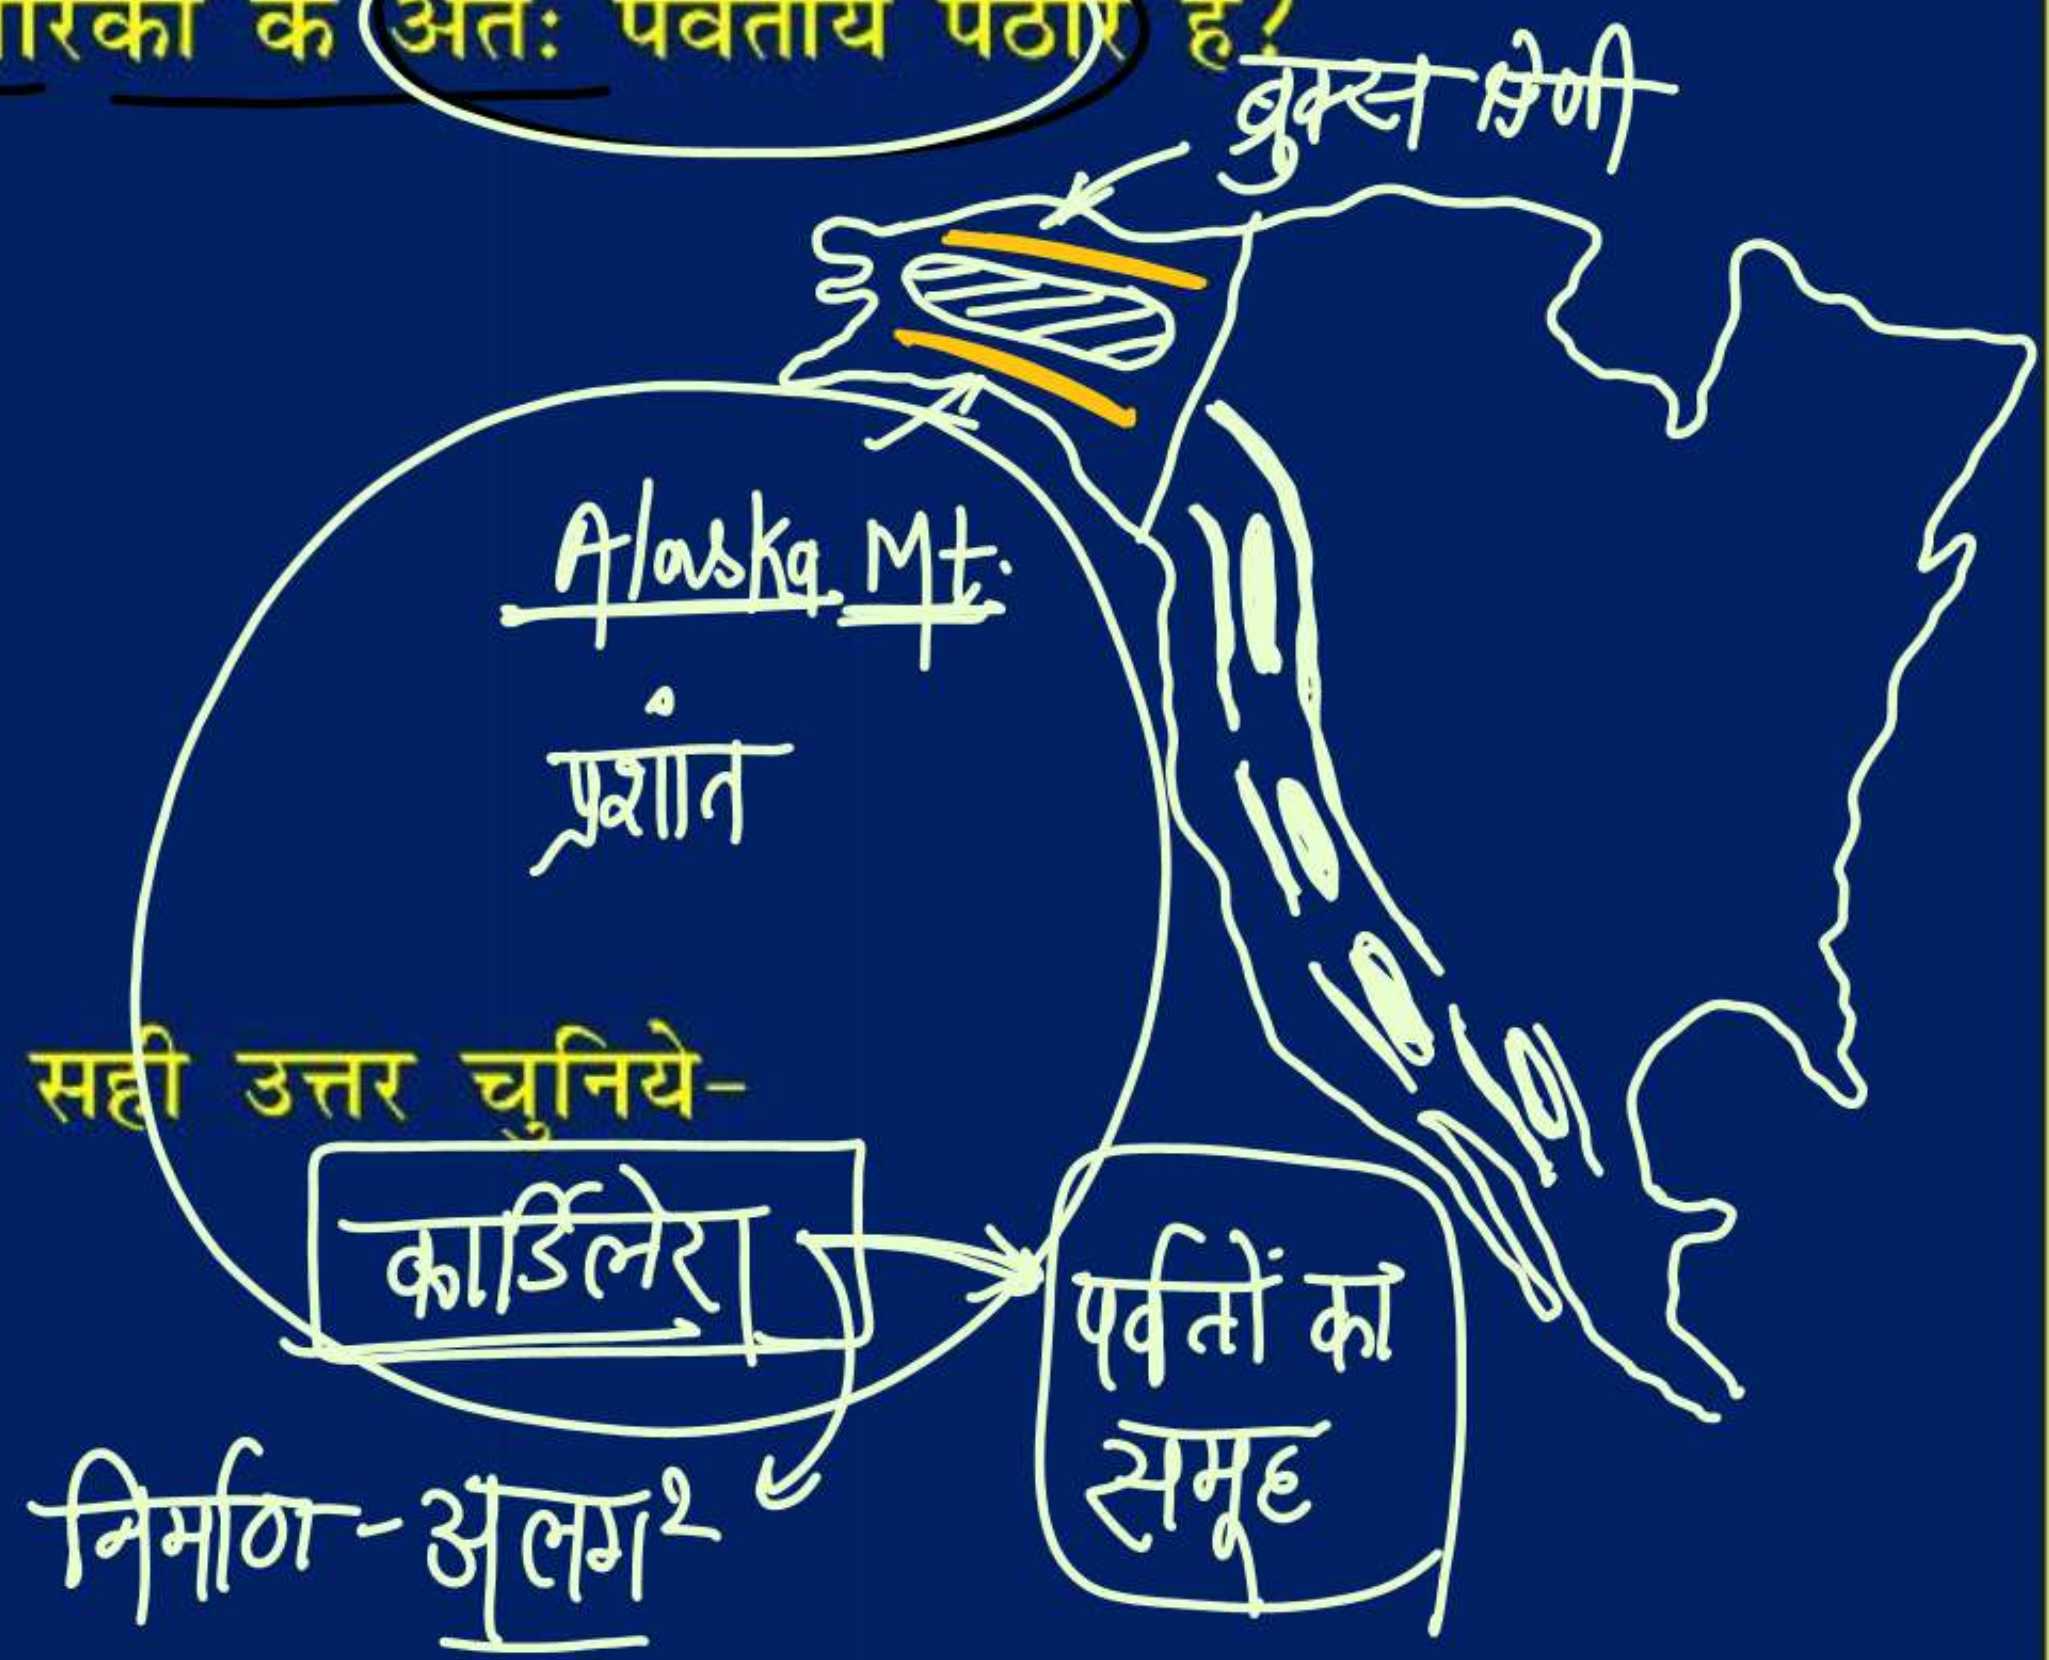 के अंतः पर्वतीय पठार हैं?
ब्रुक्स श्रेणी
Alaska Mt.
प्रशांत
सही उत्तर चुनिये-
कार्डिलेरा
पर्वतों का
समूह
निर्माण - अलग२